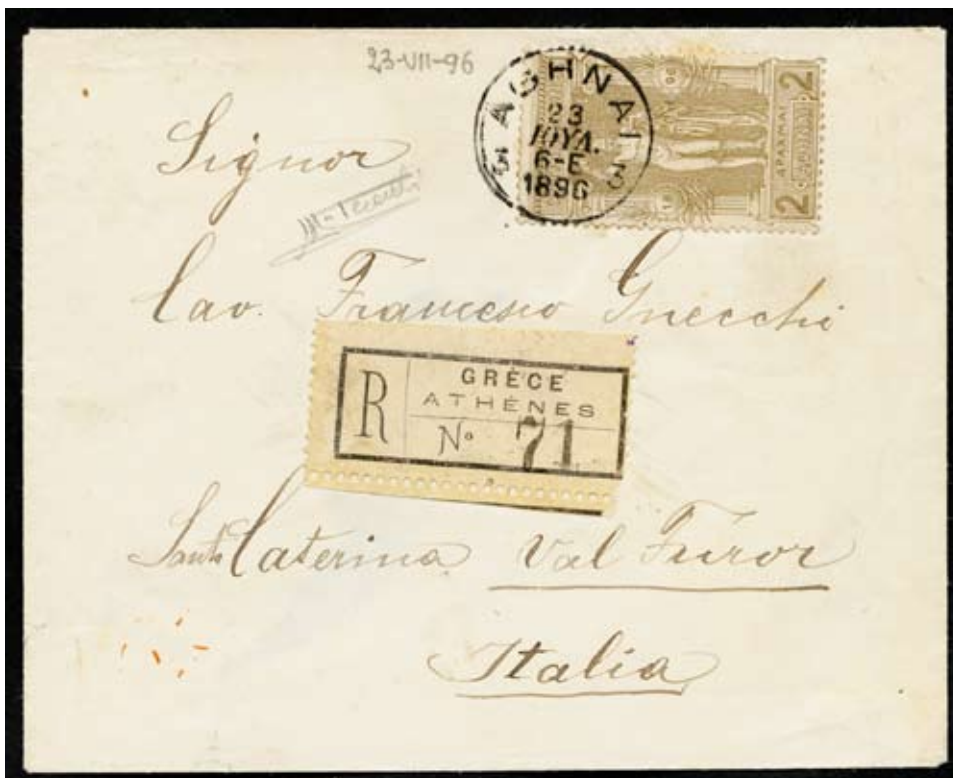 23-VII-96
ΑΘΗΝΑΙ
23
ΙΟΥΛ.
6-Ε
1896
3 3
2 ΔΡΑΧΜΑΙ 2
Signor
Cav. Francesco Gnecchi
R
GRÈCE
ATHÈNES
No 71
Santa Caterina Val Furor
Italia